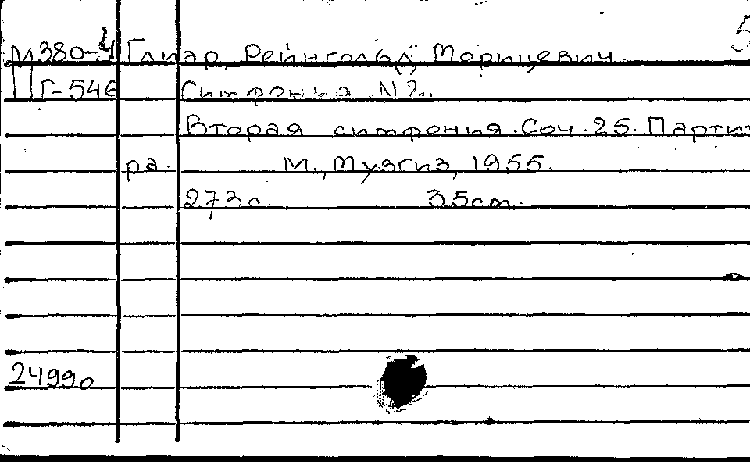 М380-4 Глиэр, Рейнгольд Морицевич
Г-546 Симфония N2.
Вторая симфония. Соч. 25. Партиту
ра. М., Музгиз, 1955.
273с. 35см.
24990